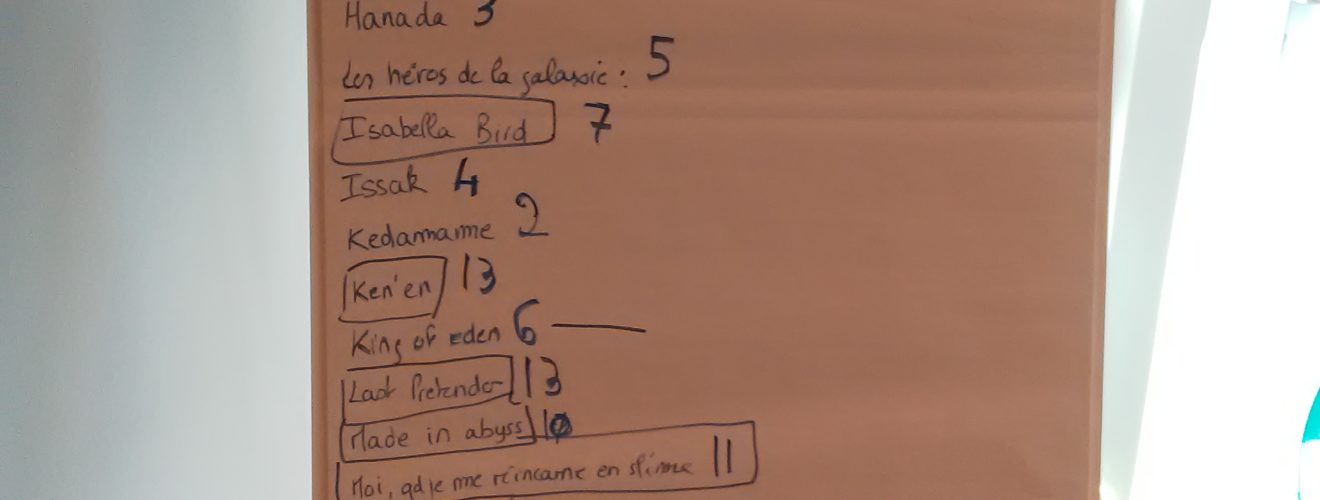 Hanada 3
Les héros de la galaxie : 5
Isabella Bird 7
Issak 4
Kedamame 2
Ken'en 13
King of eden 6
Last Pretender 13
Made in abyss 10
Moi, qd je me réincarne en slime 11